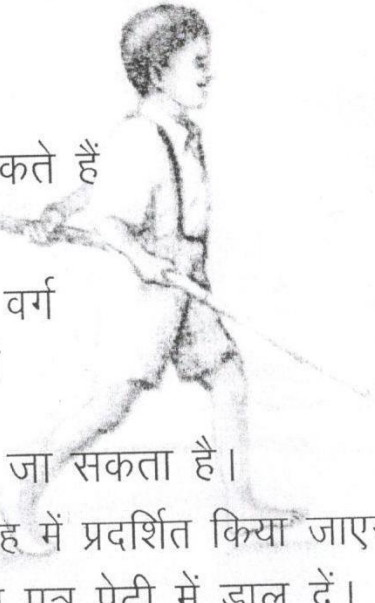 कते हैं
वर्ग
जा सकता है।
ह में प्रदर्शित किया जाए
पत्र पेटी में डाल दें।